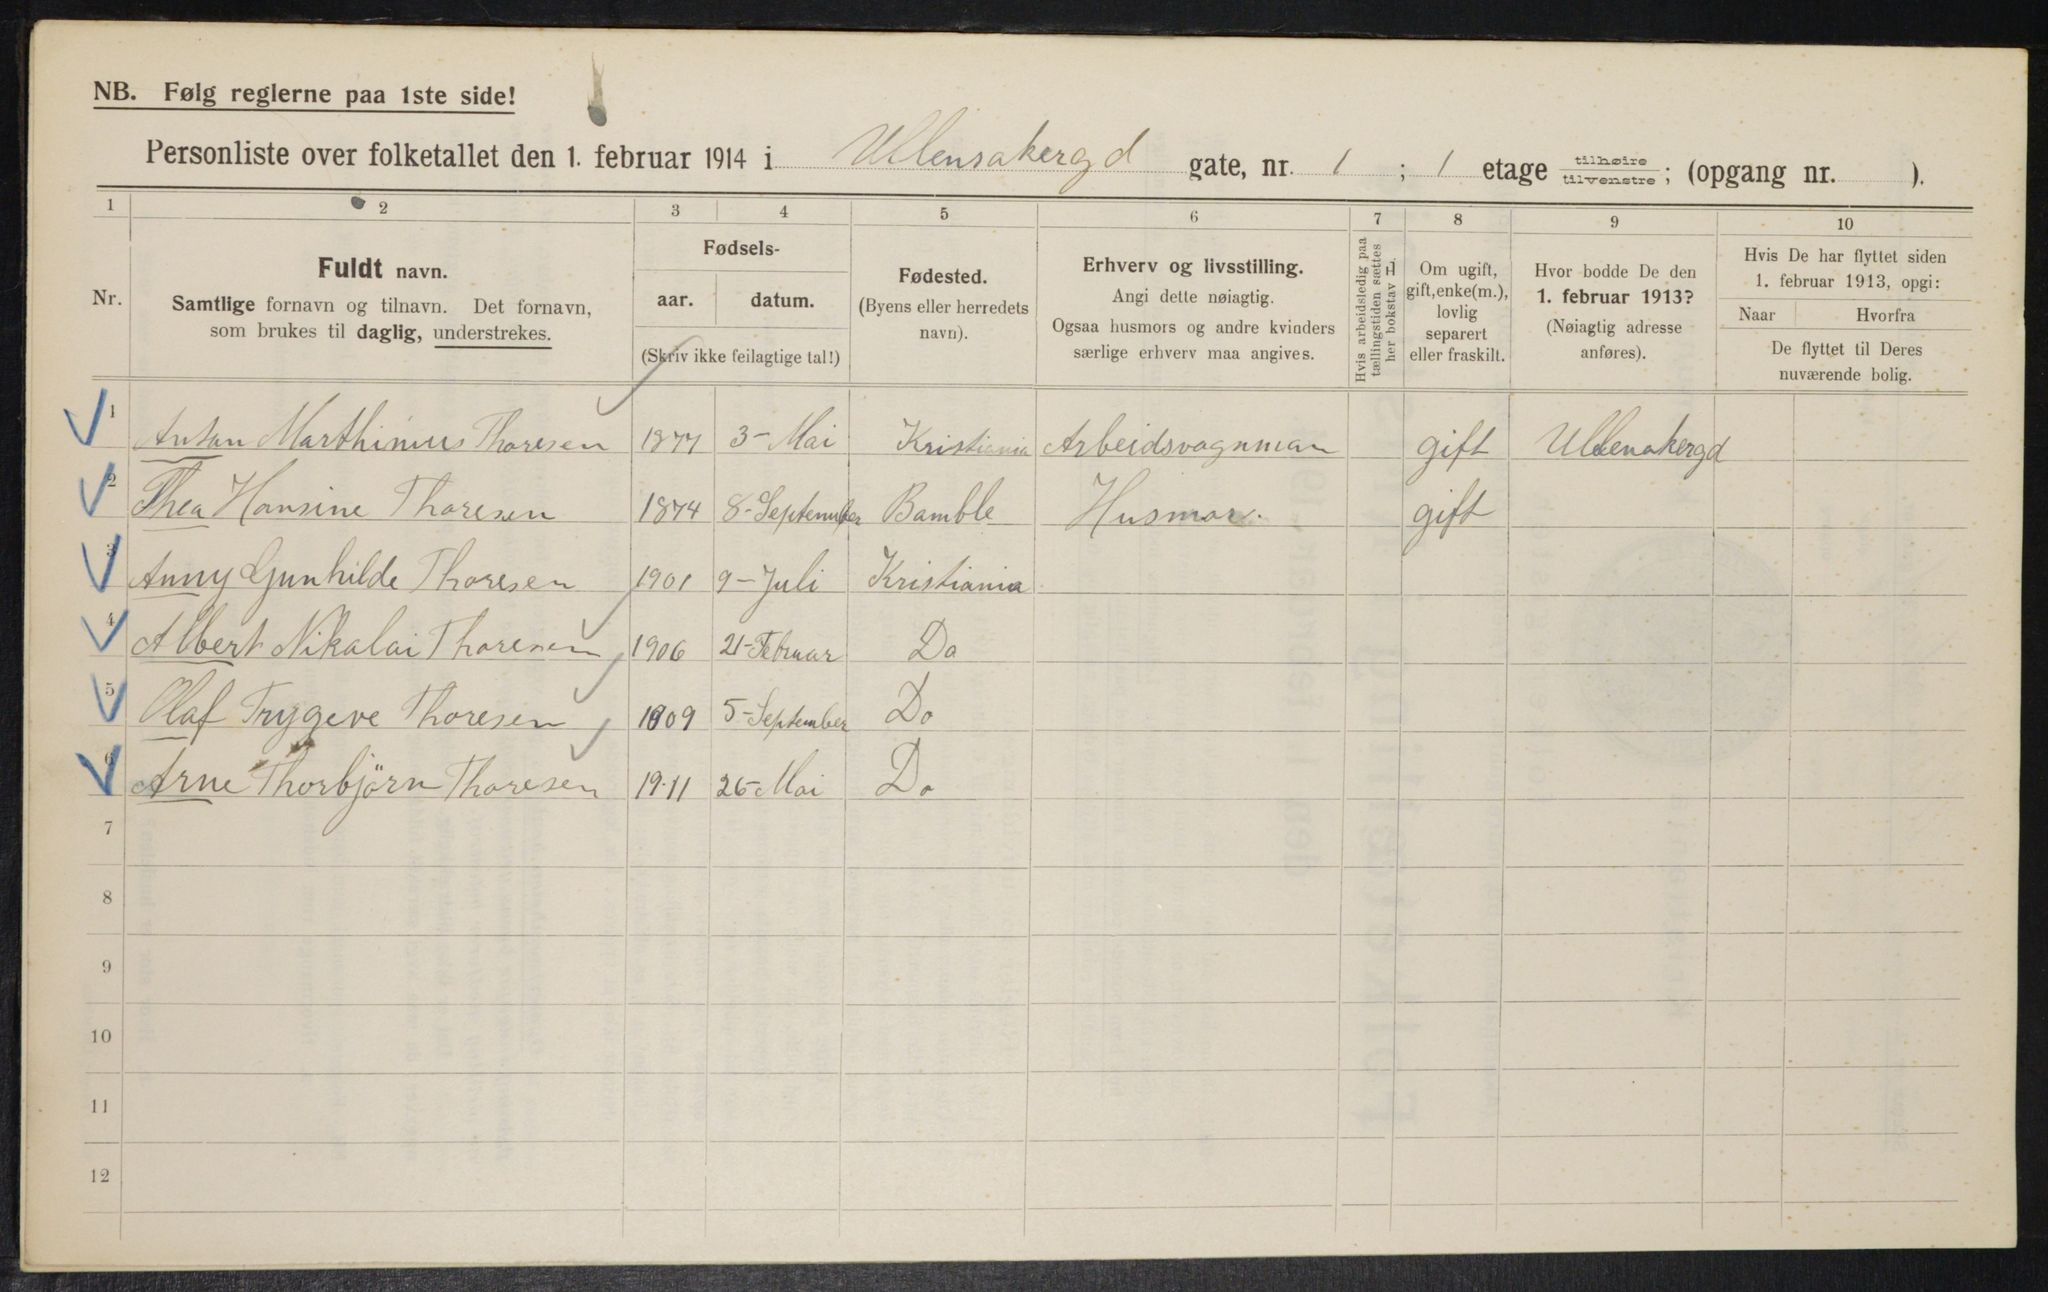 NB. Følg reglerne paa 1ste side!
Personliste over folketallet den 1. februar 1914 i Ullensakergd gate, nr. 1 ; 1 etage tilhøire tilvenstre; (opgang nr. ).
1 2 3 4 5 6 7 8 9 10
Nr.
Fuldt navn.
Samtlige fornavn og tilnavn. Det fornavn,
som brukes til daglig, understrekes.
Fødsels-
aar. datum.
(Skriv ikke feilagtige tal!)
Fødested.
(Byens eller herredets
navn).
Erhverv og livsstilling.
Angi dette nøiagtig.
Ogsaa husmors og andre kvinders
særlige erhverv maa angives.
Hvis arbeidsledig paa
tællingstiden sættes
her bokstav L.
Om ugift,
gift, enke(m.),
lovlig
separert
eller fraskilt.
Hvor bodde De den
1. februar 1913?
(Nøiagtig adresse
anføres).
Hvis De har flyttet siden
1. februar 1913, opgi:
Naar Hvorfra
De flyttet til Deres
nuværende bolig.
1 Anton Marthinius Thoresen 1877 3- Mai Kristiania Arbeidsvognman gift Ullenakergd
2 Thea Hansine Thoresen 1874 8-September Bamble Husmor. gift
3 Anny Gunhilde Thoresen 1901 9- Juli Kristiania
4 Albert Nikolai Thoresen 1906 21-Februar Do
5 Olaf Trygeve Thoresen 1909 5-September Do
6 Arne Thorbjörn Thoresen 19.11 26-Mai Do
7
8
9
10
11
12